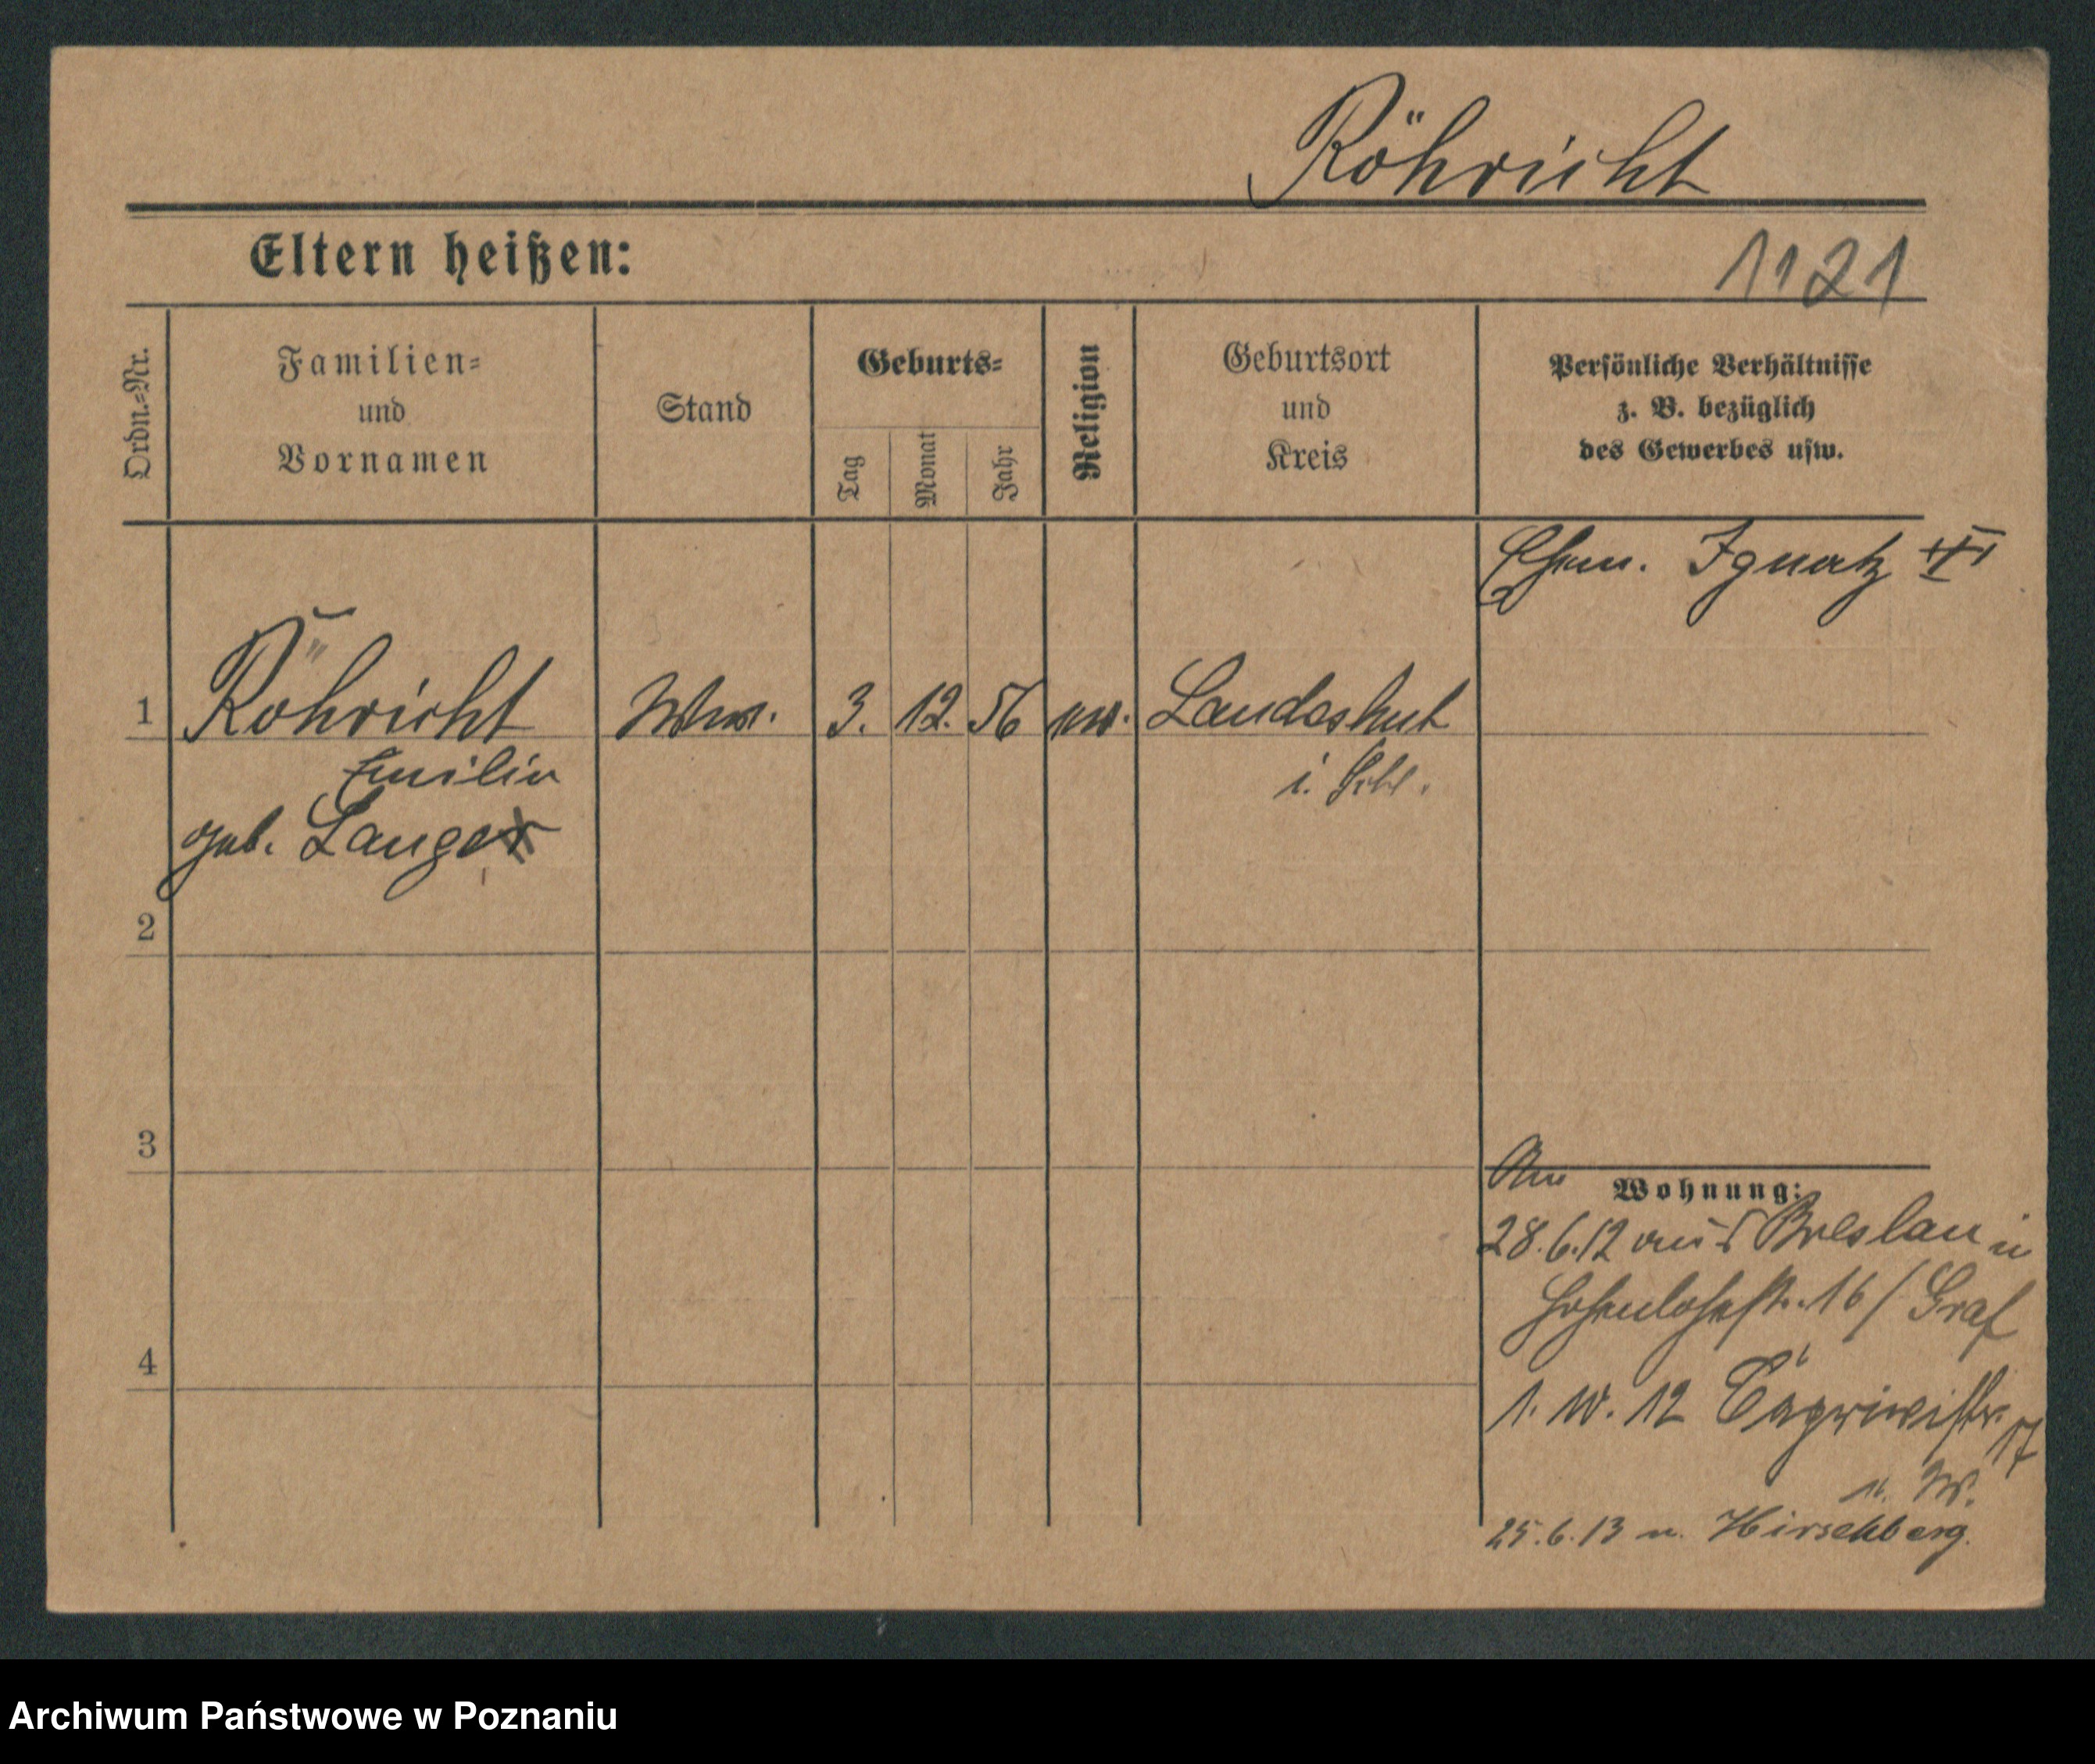 Röhricht
Eltern heißen:
1121
Ordn.=Nr.
Familien=
und
Vornamen
Stand
Geburts=
Tag
Monat
Jahr
Religion
Geburtsort
und
Kreis
Persönliche Verhältnisse
z. B. bezüglich
des Gewerbes usw.
Ehem. Ignatz
1 Röhricht Ww. 3. 12. 56 ev. Landeshut
Emilie i. Schl.
geb. Lange
2
3
4
Wohnung:
28.6.12 aus Breslau
Hohenlohestr. 16 / Graf
1. 10. 12 17
25.6.13 n. Hirschberg.
Archiwum Państwowe w Poznaniu